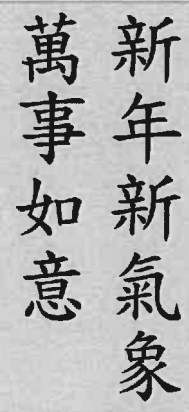 新年新氣象
萬事如意